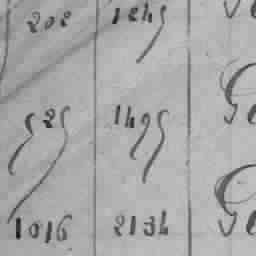 202 1245
525 1495 Ge
1016 2134 Ge